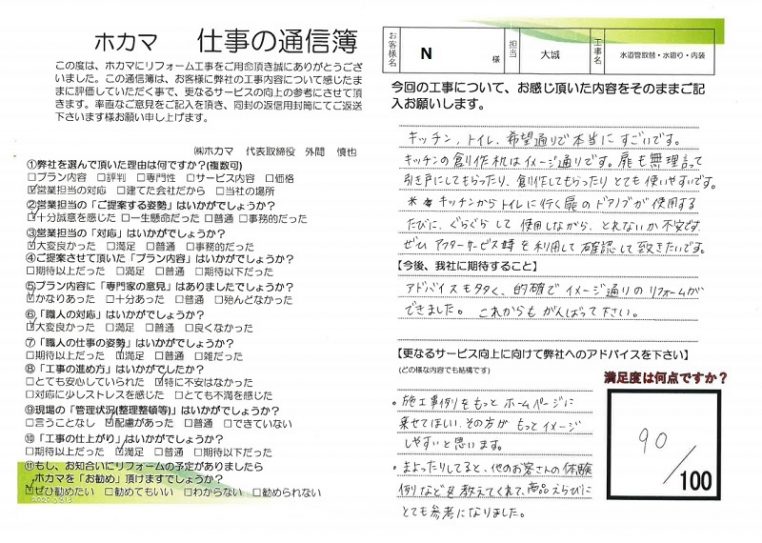 ホカマ 仕事の通信簿
この度は、ホカマにリフォーム工事をご用命頂き誠にありがとうござ
いました。この通信簿は、お客様に弊社の工事内容について感じたま
まに評価していただく事で、更なるサービスの向上の参考にさせて頂
きます。率直なご意見をご記入を頂き、同封の返信用封筒にてご返送
下さいます様お願い申し上げます。
㈱ホカマ 代表取締役 外間 慎也
①弊社を選んで頂いた理由は何ですか?(複数可)
□プラン内容 □評判 □専門性 □サービス内容 □価格
☑営業担当の対応 □建てた会社だから □当社の場所
②営業担当の「ご提案する姿勢」はいかがでしょうか?
☑十分誠意を感じた □一生懸命だった □普通 □事務的だった
③営業担当の「対応」はいかがでしょうか?
☑大変良かった □満足 □普通 □事務的だった
④ご提案させて頂いた「プラン内容」はいかがでしょうか?
□期待以上だった ☑満足 □普通 □期待以下だった
⑤プラン内容に「専門家の意見」はありましたでしょうか?
☑かなりあった □十分あった □普通 □殆んどなかった
⑥「職人の対応」はいかがでしょうか?
☑大変良かった □満足 □普通 □良くなかった
⑦「職人の仕事の姿勢」はいかがでしょうか?
□期待以上だった ☑満足 □普通 □雑だった
⑧「工事の進め方」はいかがでしたか?
□とても安心していられた ☑特に不安はなかった
□対応に少しストレスを感じた □とても不満を感じた
⑨現場の「管理状況(整理整頓等)」はいかがでしょうか?
□言うことなし ☑配慮があった □普通 □できていない
⑩「工事の仕上がり」はいかがでしょうか?
□期待以上だった ☑満足 □普通 □期待以下だった
⑪もし、お知合いにリフォームの予定がありましたら
ホカマを「お勧め」頂けますでしょうか?
☑ぜひ勧めたい □勧めてもいい □わからない □勧められない
お客様名 N 様 担当 大城 工事名 水道管取替・水廻り・内装
今回の工事について、お感じ頂いた内容をそのままご記
入お願いします。
キッチン,トイレ,希望通りで本当にすごいです。
キッチンの創作机はイメージ通りです。扉も無理言って
引き戸にしてもらったり、創作してもらったりとても使いやすいです。
* キッチンからトイレに行く扉のドアノブが使用する
たびに、ぐらぐらして使用しながら、とれないか不安です
ぜひアフターサービス時を利用して確認して致きたいです。
【今後、我社に期待すること】
アドバイスも多々く、的確でイメージ通りのリフォームが
できました。これからもがんばって下さい。
【更なるサービス向上に向けて弊社へのアドバイスを下さい】
(どの様な内容でも結構です)
。施工事例をもっとホームページに
乗せてほしい、その方がもっとイメージ
しやすいと思います。
。まよったりしてると、他のお客さんの体験
例などを教えてくれて、商品えらびに
とても参考になりました。
満足度は何点ですか?
90/100